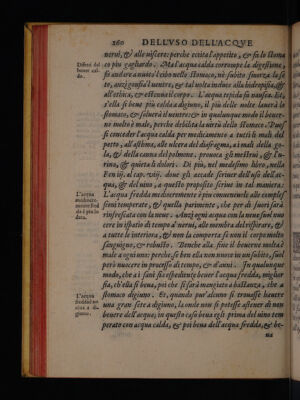 260 DELL'VSO DELL'ACQVE
nerui, & alle uiscere: perche eccita l'appetito, & fa lo stoma
co piu gagliardo. Ma l'acqua calda corrompe la digestione,
fa andare a nuoto il cibo nello stomaco, nè subito smorza la se
te, anzi gonfia il uentre, & tal uolta induce alla hidropisia, &
all'ethica, & estenua il corpo. L'acqua tepida fa nausea. Et
s'ella si beue piu calda a digiuno, il piu delle uolte lauerà lo
stomaco, & soluerà il uentre: & in qualunque modo il beuer-
ne molto è male, perche debilita la uirtù dello stomaco. Puos
si conceder l'acqua calda per medicamento a tutti li mali del
petto, all'asthma, alle ulcere del diafragma, a i mali della go-
la, & della canna del polmone, prouoca gli mestrui, & l'o-
rina, & quieta li dolori. Di piu, nel medesimo libro, nella
Fen iij. al cap. viij. doue gli accade scriuer dell'uso dell'ac-
qua, & del uino, a questo proposito scriue in tal maniera:
L'acqua fredda mediocremente è piu conueniente alle complef
sioni temperate, & quella parimente, che per di fuori sarà
rinfrescata con la neue. Anzi ogni acqua con la neue suol nuo
cere in ispatio di tempo a' nerui, alle membra del respirare, &
a tutte le interiora, & non la comporta se non il corpo molto
sanguigno, & robusto. Benche alla fine il beuerne molta è
male a ogni uno: perche se ben ella non nuoce in un subito, suol
però nuocere in processo di tempo, & d'anni. In qualunque
modo, che a i sani sia espediente beuer l'acqua fredda, miglior
fia, ch'ella si beua, poi che si sarà mengiato a bastanza, che a
stomaco digiuno. Et quando pur'alcuno si trouasse hauere
una gran sete a digiuno, la onde non si potesse astener di non
beuere dell'acqua; in questo caso beua egli prima del uino tem
perato con acqua calda, & poi beua dell'acqua fredda, & be-
ua
Difetti del
beuer cal-
do.
L'acqua
L'acqua
fredda
digiuno.